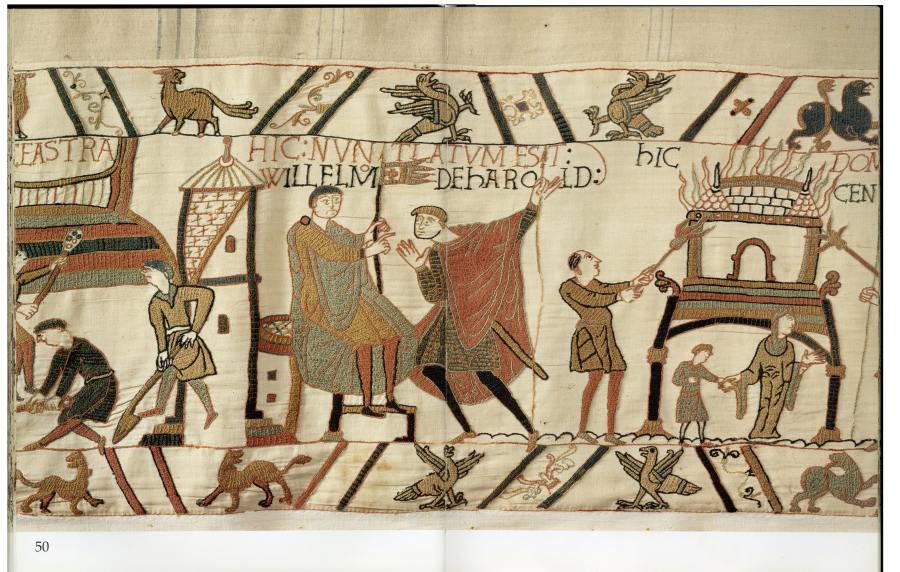 CEASTRA
HIC: NVNTIATVM EST:
WILLELM DE hAROLD:
hIC
DOM
CEN
50